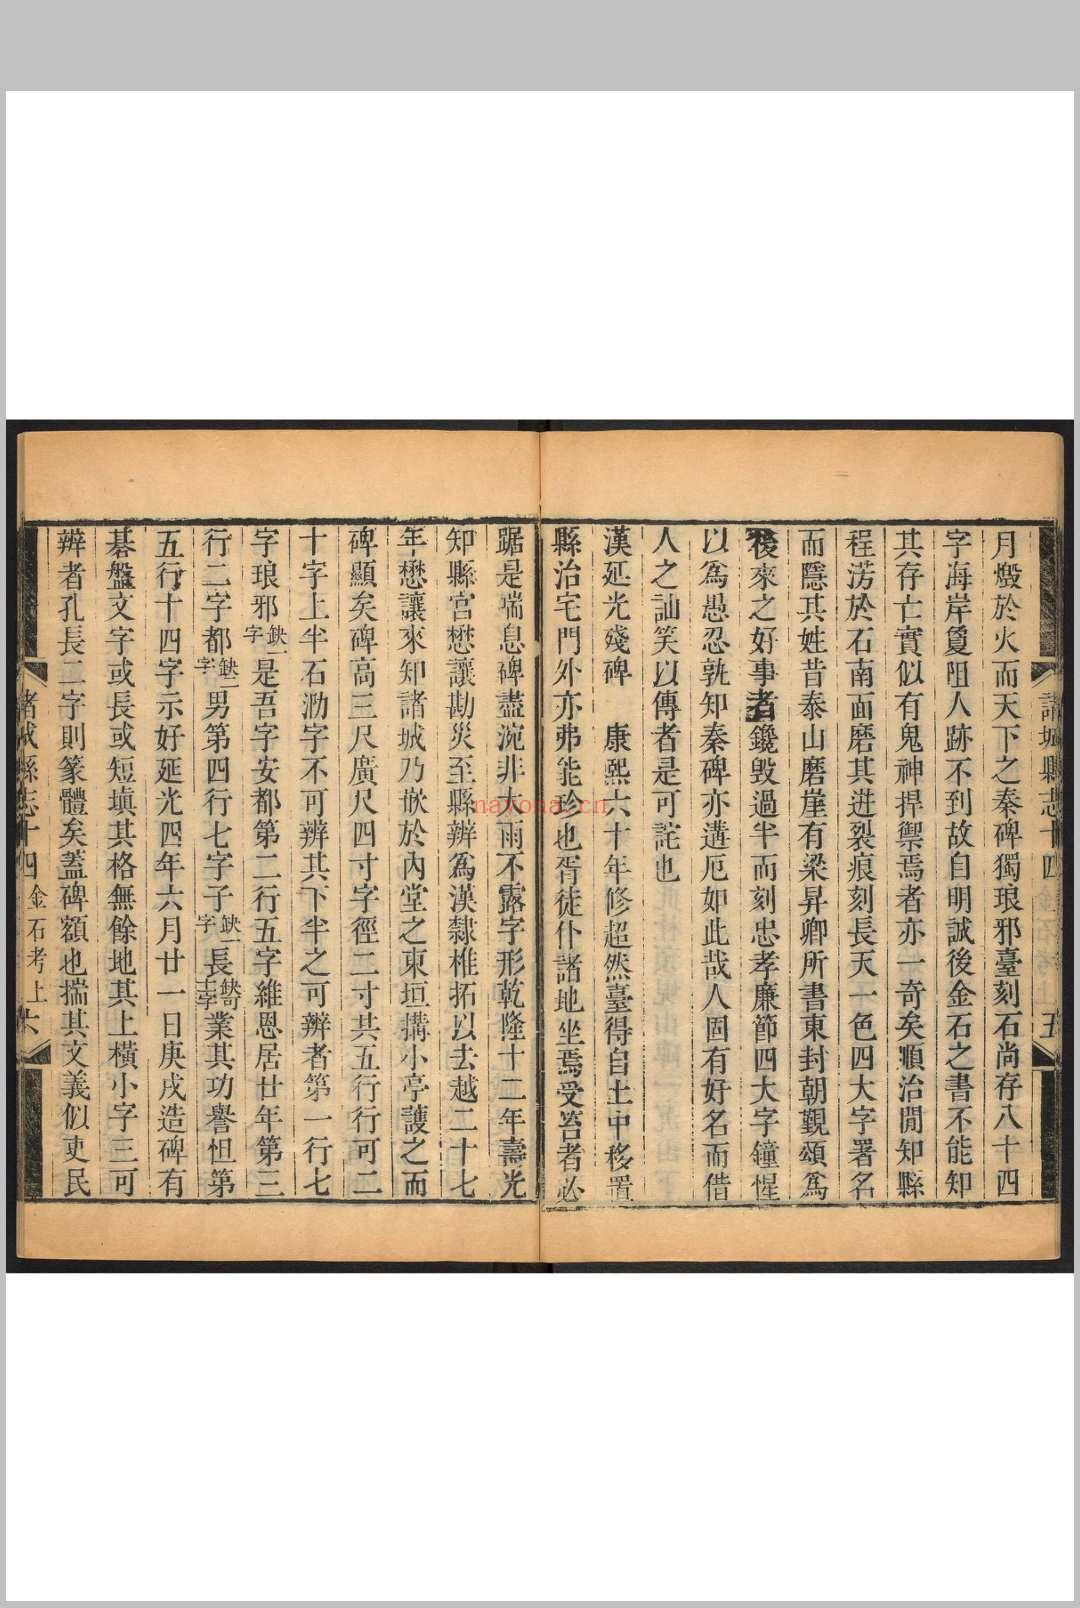 諸城縣志十四
五
月燬於火而天下之秦碑獨琅邪臺刻石尚存八十四
字海岸敻阻人跡不到故自明誠後金石之書不能知
其存亡實似有鬼神捍禦焉者亦一奇矣順治閒知縣
程涝於石南面磨其迸裂痕刻長天一色四大字署名
而隱其姓昔泰山磨崖有梁昇卿所書東封朝覲頌爲
後來之好事者鑱毁過半而刻忠孝廉節四大字鐘惺
以爲愚忍孰知秦碑亦遘厄如此哉人固有好名而借
人之訕笑以傳者是可詫也
漢延光殘碑 康熙六十年修超然臺得自土中移置
縣治宅門外亦弗能珍也胥徒仆諸地坐焉受笞者必
踞是喘息碑盡涴非大雨不露字形乾隆十二年壽光
知縣宮懋讓勘災至縣辨爲漢隸椎拓以去越二十七
年懋讓來知諸城乃嵌於內堂之東垣搆小亭護之而
碑顯矣碑高三尺廣尺四寸字徑二寸共五行行可二
十字上半石泐字不可辨其下半之可辨者第一行七
字琅邪缺一字是吾字安都第二行五字維恩居廿年第三
行二字都缺一字男第四行七字子缺一字長缺二字業其功譽怛第
五行十四字示好延光四年六月廿一日庚戌造碑有
棊盤文字或長或短塡其格無餘地其上橫小字三可
辨者孔長二字則篆體矣葢碑額也揣其文義似吏民
諸城縣志十四 金石考上 六
nayona.cn